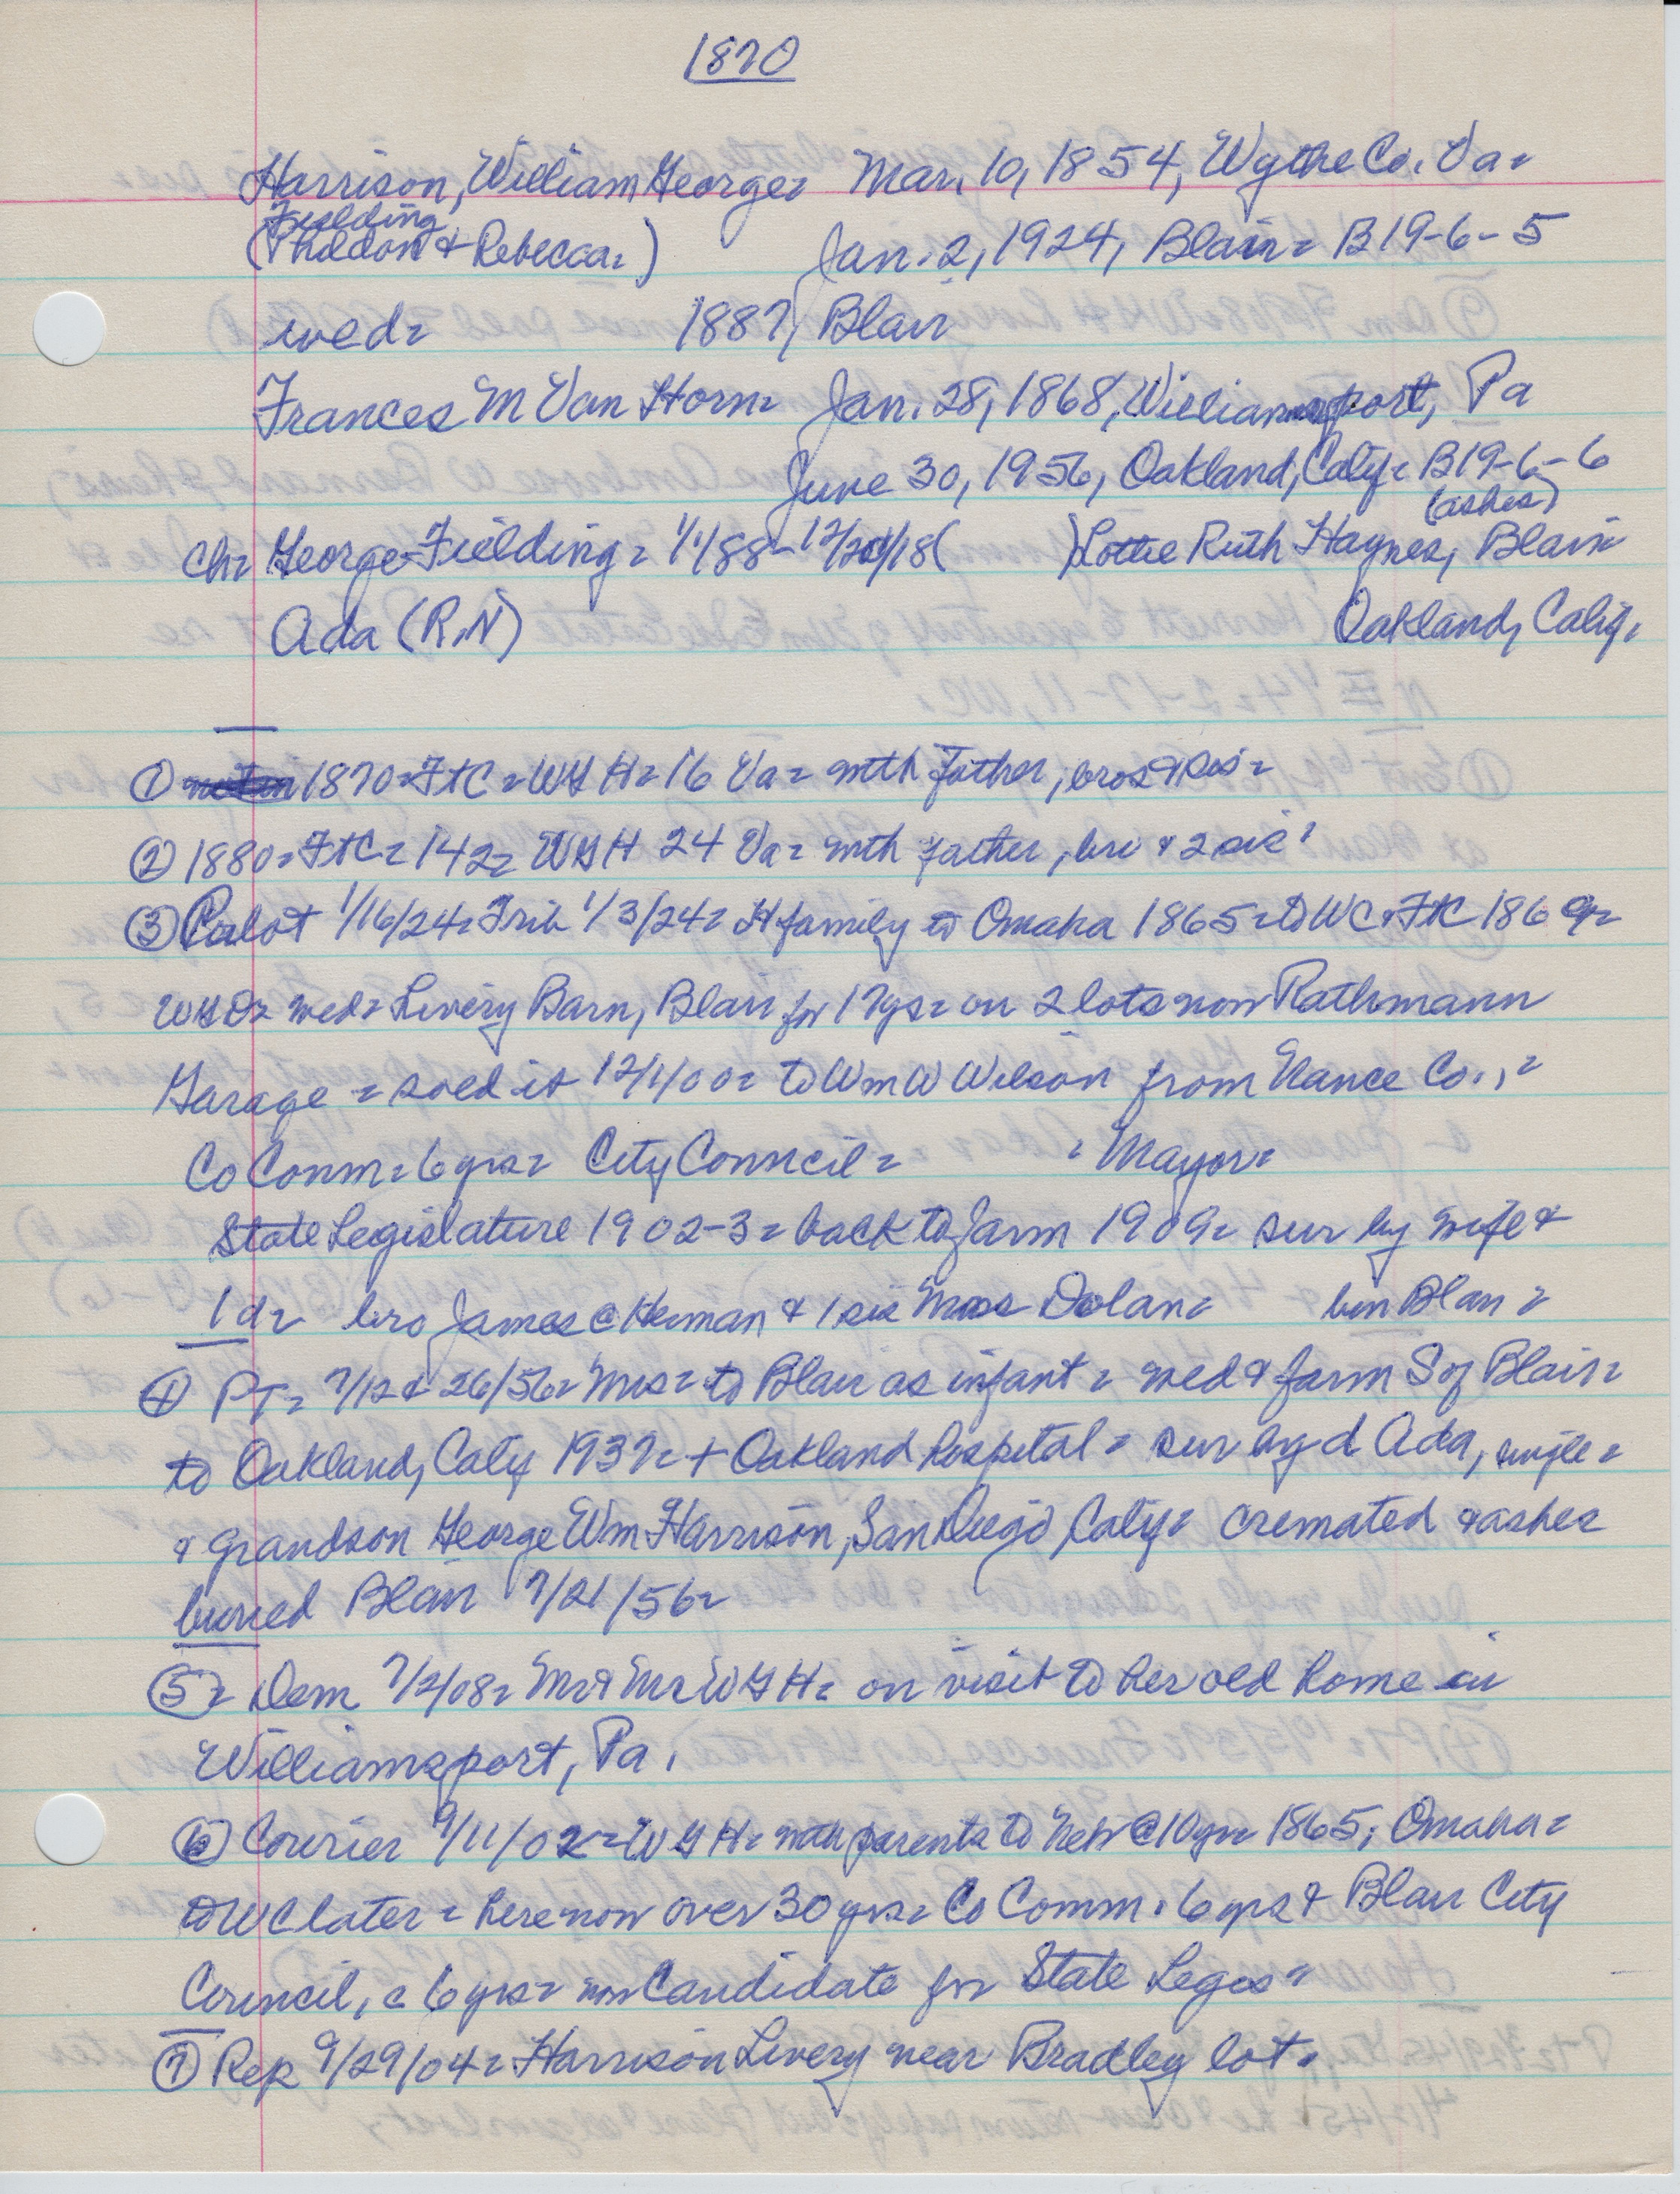 1870
Harrison, William George= Mar. 10, 1854, Wythe Co. Va=
Fielding
( & Rebecca=) Jan. 2, 1924, Blair= B19-6-5
wed= 1887, Blair
Frances M Van Horn= Jan. 28, 1868, Williamsport, Pa
June 30, 1956, Oakland, Calif= B19-6-6
(ashes)
Ch= George Fielding= 1/1/88- 12/20/18( )Lottie Ruth Haynes, Blair=
Ada (R.N) Oakland, Calif=
① 1870=FtC=WGH=16 Va= with father, bros & sis=
② 1880=FtC=142= WGH 24 Va= with father, bro & 2 sis=
③ Pilot 1/16/24= Trib 1/3/24= H family to Omaha 1865=to WC&FtC 1869=
wed= Livery Barn, Blair for 17ys= on 2 lots now Rathmann
Garage = sold it 12/1/00= to Wm W Wilson from Nance Co.,=
Co Comm=6 yrs= City Council= = Mayor=
State Legislature 1902-3= back to farm 1909= sur by wife &
1 d= bro James @ Herman & 1 sis Mrs Dolan= bur Blair=
④ PT= 7/12 & 26/56= Mrs= to Blair as infant= wed & farm S of Blair=
to Oakland, Calif 1937= + Oakland hospital= sur by d Ada, single=
& grandson George Wm Harrison, San Diego, Calif= cremated & ashes
buried Blair 7/21/56=
⑤= Dem 7/2/08= Mr & Mrs WGH= on visit to her old home in
Williamsport, Pa.
⑥ Courier 9/11/02=WGH= with parents to Neb @10yr= 1865; Omaha=
to WC later= here now over 30 yrs= Co Comm. 6 yrs & Blair City
Council, @ 6 yrs= now Candidate for State Legis=
⑦ Rep 9/29/04= Harrison Livery near Bradley lot.